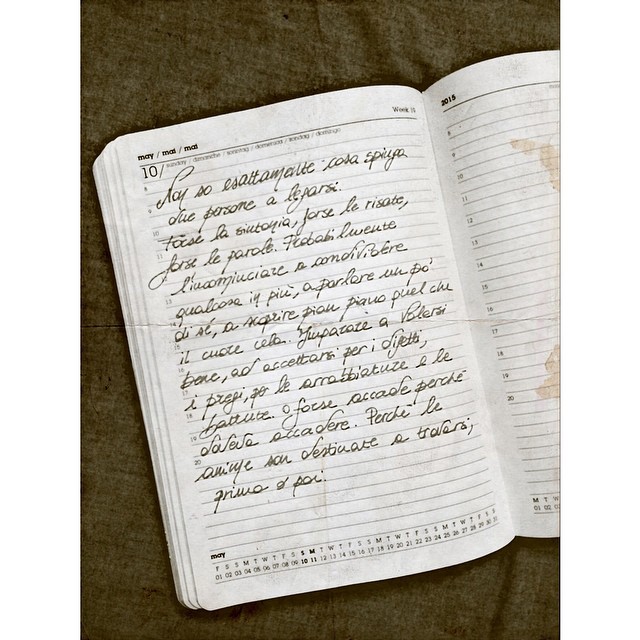 may / mai / mai
Week 19
10/ sunday / dimanche / sonntag / domenica / söndag / domingo
Non so esattamente cosa spinga
due persone a legarsi.
Forse la sintonia, forse le risate,
forse le parole. Probabilmente
l'incominciare a condividere
qualcosa in più, a parlare un po'
di sé, a scoprire pian piano quel che
il cuore cela. Imparare a volersi
bene, ad accettarsi per i difetti,
i pregi, per le arrabbiature e le
battute. O forse accade perché
doveva accadere. Perché le
anime son destinate a trovarsi,
prima o poi.
8
9
10
11
13
14
15
16
17
18
19
20
may
F S S M T W T F S S M T W T F S S M T W T F S S M T W T F S S
01 02 03 04 05 06 07 08 09 10 11 12 13 14 15 16 17 18 19 20 21 22 23 24 25 26 27 28 29 30 31
2015
8
9
10
11
12
13
14
15
16
17
18
19
20
M T W
01 02 03